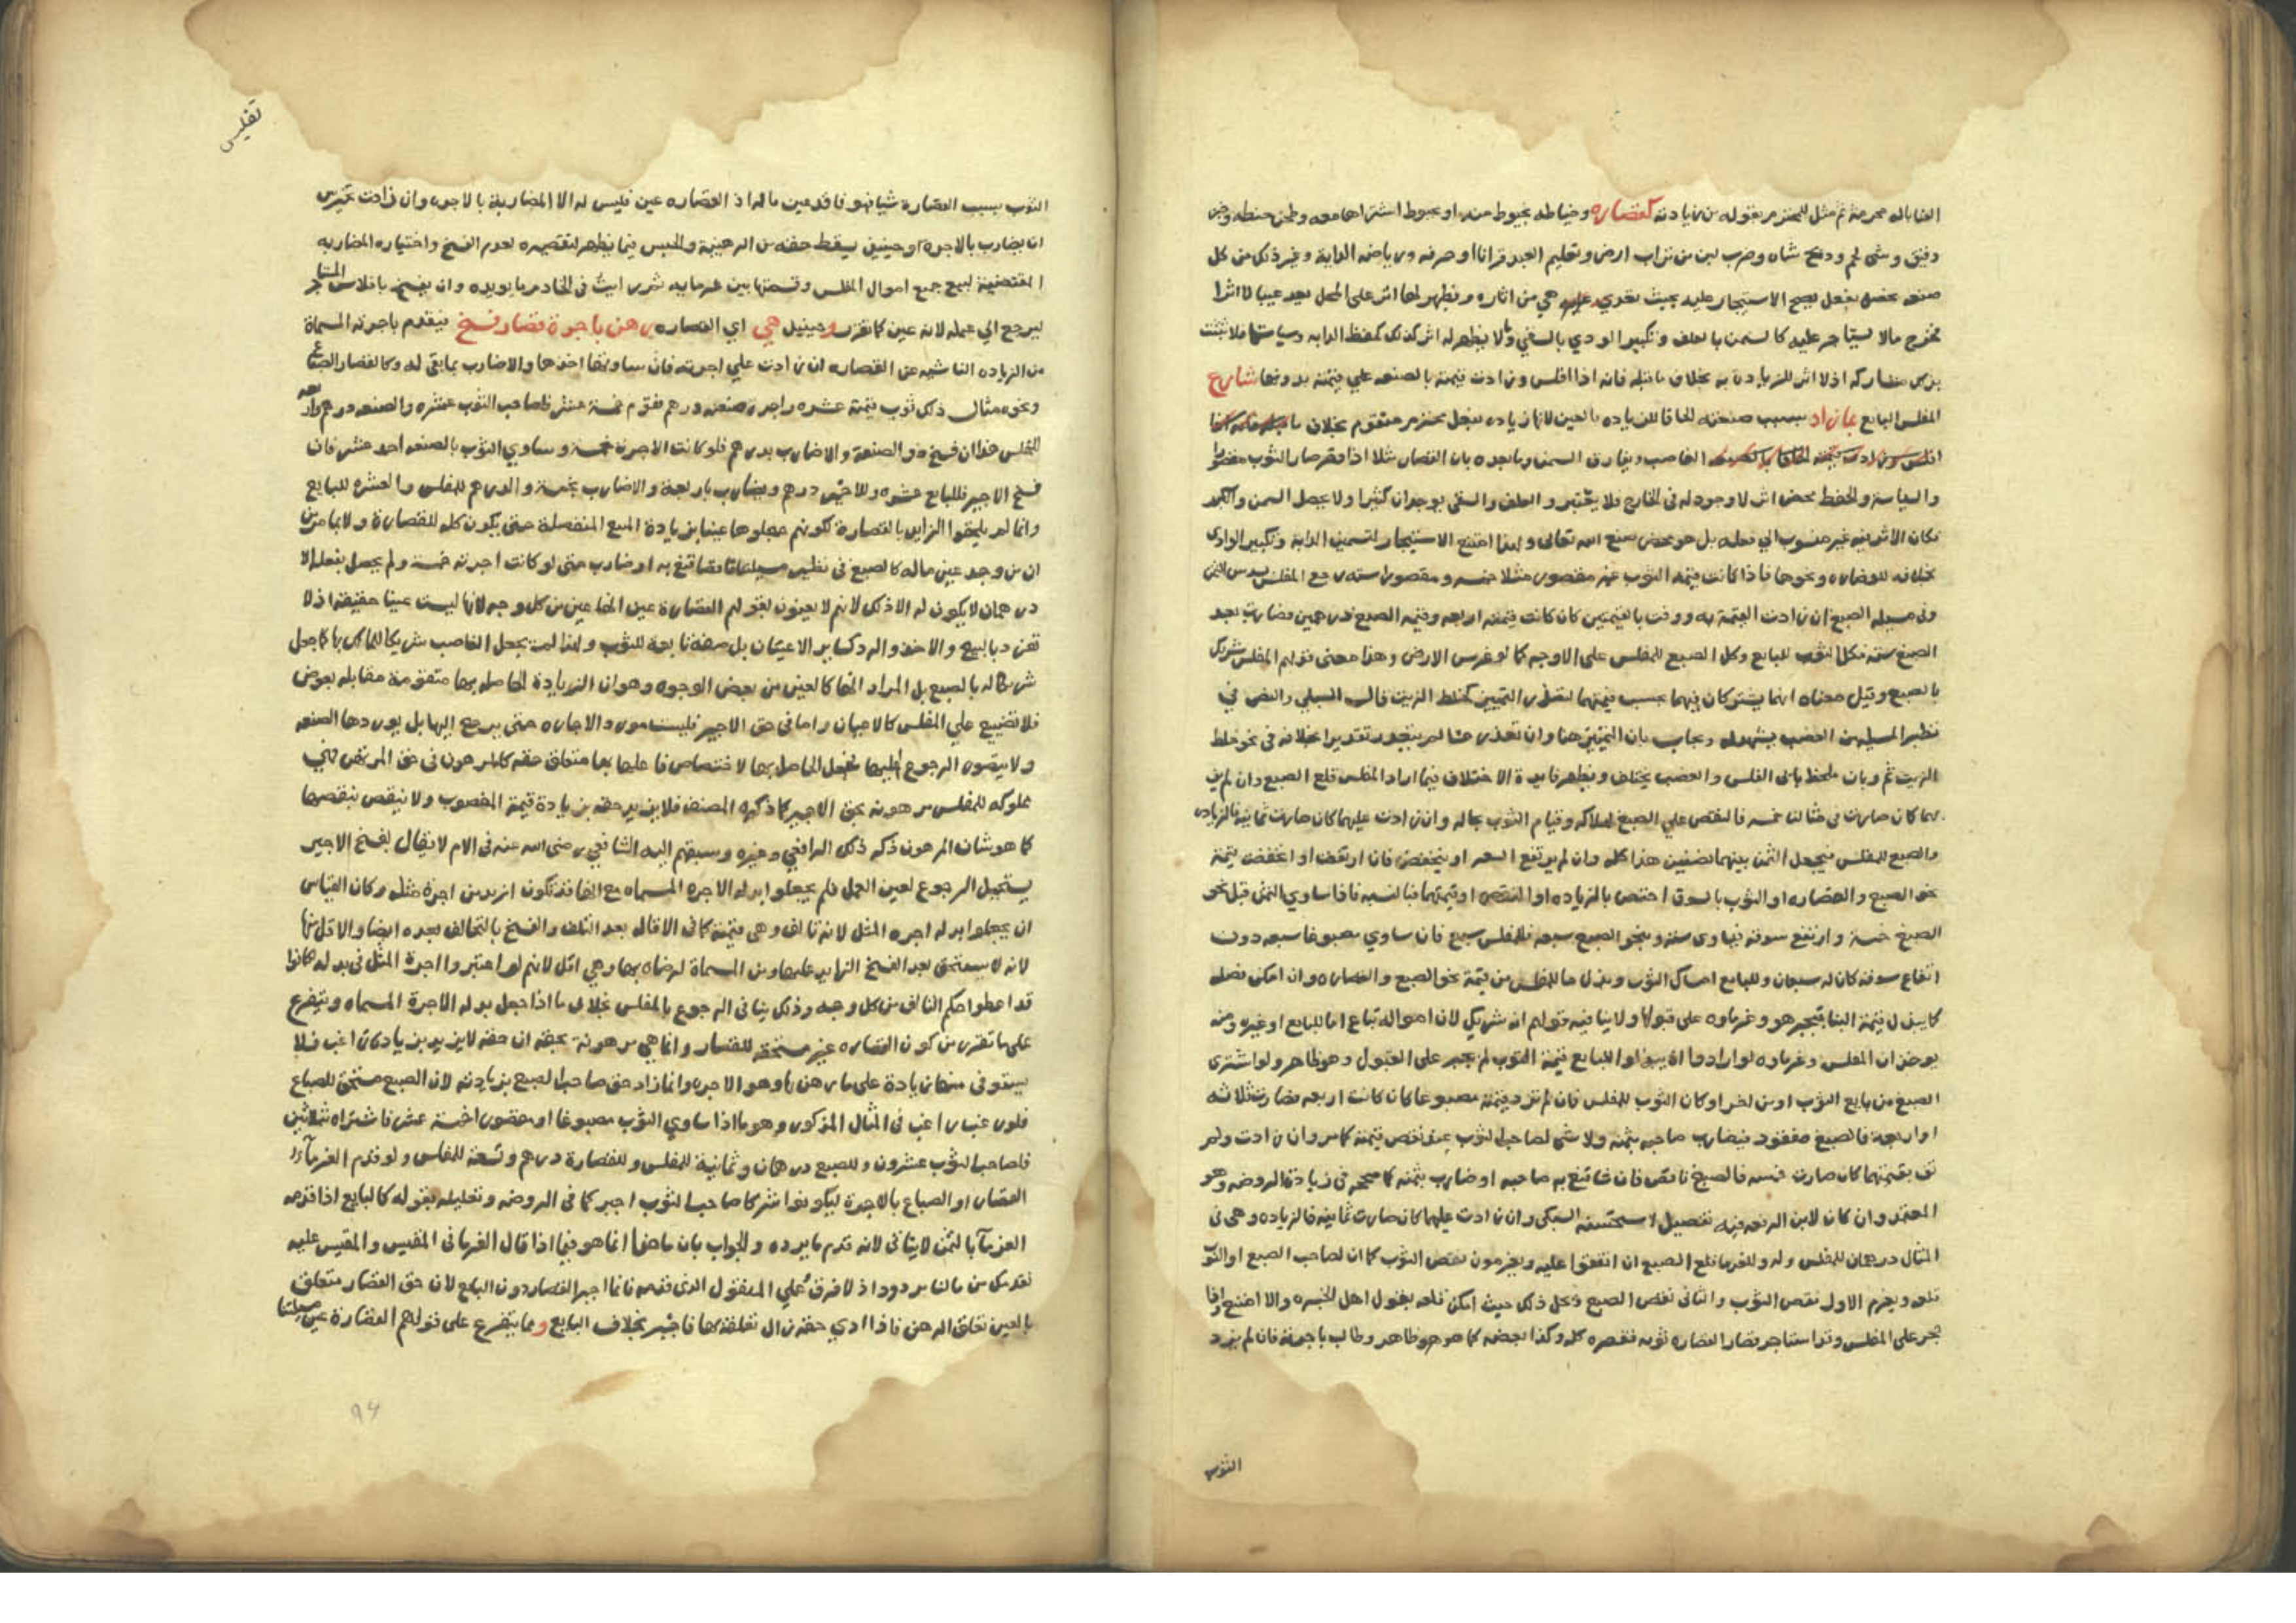 القابالة محرمة ثم مثل للمحترم بقوله من زيادته كقصاره وخياطه بخيوط منه او بخيوط اشتراها معه وطحن حنطه وخبز
دقيق وشي لحم وذبح شاه وضرب لبن من تراب ارض وتعليم العبد قرانا او حرفه ورياضه الدابة وغير ذلك من كل
صنعه بفعل يصح الاستيجار عليه بحيث هي من اثاره ويظهر لها اثر على المحل يعد عينا لا اثرا
فخرج مالا يستاجر عليه كالسمن بالعلف وتكبير الودي بالسقي ولا يظهر له اثر كذلك كحفظ الدابه وسياستها فلا تثبت
مشاركه اذ لا اثر للزيادة به بخلاف ما قبله فانه اذا افلس وزادت قيمته بالصنعه علي قيمته بدونها شارك
المفلس البايع بما زاد بسبب صنعته الحاقا للزياده بالعين لانها زياده بفعل محترم متقوم بخلاف ما
الغاصب ويفارق السمن وما بعده بان القصار مثلا اذا قصر صار الثوب مقصورا
والسياسة والحفظ محض اثر لا وجود له في الخارج فلا يعتبر والعلف والسقي يوجدان كثيرا ولا يحصل السمن والكبر
فكان الاثر فيه غير منسوب الي فعله بل هو محض صنع الله تعالى ولهذا امتنع الاستيجار لتسمين الدابة وتكبير الوادي
بخلافه للقصاره ونحوها فاذا كانت قيمة الثوب غير مقصور مثلا خمسه ومقصورا سته رجع المفلس بسدس الثمن
وفي مسيله الصبغ ان زادت القيمة به ووفت بالقيمتين كان كانت قيمته اربعه وقيمه الصبغ درهمين فصارت بعد
الصبغ سته فكل الثوب للبايع وكل الصبغ للمفلس على الاوجه كما لو غرس الارض وهذا معنى قولهم المفلس شريك
بالصبغ وقيل معناه انهما يشتركان فيهما بحسب قيمتهما لتعذر التمييز كخلط الزيت قال السبكي والنص في
نظير المسيله من الغصب يشهد له ويجاب بان التمييز هنا وان تعذر حسا لم يتعذر تقديرا بخلافه في نحو خلط
الزيت ثم وبان ملحظ بابي الفلس والغصب يختلف ويظهر فايدة الاختلاف فيما اراد المفلس قلع الصبغ وان لم يف
بهما كان صارت في مثالنا خمسه فالنقص علي الصبغ لهلاكه وقيام الثوب بحاله وان زادت عليهما كان صارت ثمانية فالزياده
والصبغ للمفلس فيجعل الثمن بينهما نصفين هذا كله وان لم يرتفع السعر او ينخفض فان ارتفعت او انخفضت قيمة
نحو الصبغ والقصاره او الثوب بالسوق اختص بالزياده او النقص او قيمتهما فبالنسبه فاذا ساوي الثمن قبل نحو
الصبغ خمسة وارتفع سوقه فساوى سته وبنحو الصبغ سبعه فللمفلس سبع فان ساوي مصبوغا سبعه دون
ارتفاع سوقه كان له سبعان وللبايع امساك الثوب وبذل ما للمفلس من قيمة نحو الصبغ والقصاره وان امكن فصله
كما يبذل قيمة البنا فيجبر هو وغرماوه على قبولها ولا ينافيه قولهم انه شريك لان امواله تباع اما للبايع او غيره ومنه
يوخذ ان المفلس وغرماوه لو ارادوا ان يبذلوا للبايع قيمة الثوب لم يجبر على القبول وهو ظاهر ولو اشترى
الصبغ من بايع الثوب او من اخر او كان الثوب للمفلس فان لم تزد قيمته مصبوغا كان كانت اربعه فصارت ثلاثه
او اربعة فالصبغ مفقود فيضارب صاحبه بثمنه ولا شي لصاحب الثوب عند نقص قيمته كما مر وان زادت ولم
تف بقيمتهما كان صارت خمسه فالصبغ ناقص فان شا قنع به صاحبه او ضارب بثمنه كما صححه في زيادة الروضه وهو
المعتمد وان كان لابن الرفعه فيه تفصيل استحسنه السبكي وان زادت عليهما كان صارت ثمانيه فالزياده وهي في
المثال درهمان للمفلس وله وللغرما قلع الصبغ ان اتفقوا عليه ويغرمون نقص الثوب كما ان لصاحب الصبغ او الثوب
قلعه ويغرم الاول نقص الثوب والثاني نقص الصبغ ومحل ذلك حيث امكن قلعه بقول اهل الخبره والا امتنع واذا
حجر على المفلس وقد استاجر قصارا لقصاره ثوبه فقصره كله وكذا بعضه كما هو ظاهر وطالب باجرته فان لم يزد
الثوب
تفليس
الثوب بسبب القصارة شيا فهو فاقد عين ماله اذ القصاره عين فليس له الا المضاربة بالاجره وان زادت تخير بين
ان يضارب بالاجرة وحينيذ يسقط حقه من الرهينة والحبس فيما يظهر لتقصيره لعدم الفسخ واختياره المضاربه
المقتضية لبيع جميع اموال المفلس وقسمتها بين غرمايه ثم رايت في الخادم ما يويده وان يفسخ بافلاس المستاجر
ليرجع الي عمله لانه عين كما تقرر وحينيذ هي اي القصاره رهن باجرة قصار فسخ فيقدم باجرته المسماة
من الزياده الناشيه عن القصاره ان زادت علي اجرته فان ساوتها اخذها والا ضارب بما بقى له وكالقصار الصباغ
ونحوه مثال ذلك ثوب قيمته عشره واجرة صنعته درهم فقوم خمسة عشر فلصاحب الثوب عشره والصنعه درهم واربعه
للمفلس هذا ان فسخ ذو الصنعة والا ضارب بدرهم فلو كانت الاجرة خمسة وساوي الثوب بالصنعه احد عشر فان
فسخ الاجير فللبايع عشره وللاجير درهم ويضارب باربعة والا ضارب بخمسة والدرهم للمفلس والعشره للبايع
وانما لم يلحقوا الزايد بالقصارة لكونهم جعلوها عينا بزيادة المبيع المنفصلة حتى يكون كله للقصارة ولا بما مر من
ان من وجد عين ماله كالصبغ في نظير مسيلتنا ناقصا قنع به او ضارب حتى لو كانت اجرته خمسة ولم يحصل بفعله الا
درهمان لا يكون له الا ذلك لانهم لا يعنون بقولهم القصارة عين انها عين من كل وجه لانها ليست عينا حقيقة اذ لا
تفرد بالبيع والاخذ والرد كساير الاعيان بل صفة تابعة للثوب ولهذا لم يجعل الغاصب شريكا للمالك بها كما جعل
شريكا له بالصبغ بل المراد انها كالعين من بعض الوجوه وهو ان الزيادة الحاصله بها متقومة مقابله بعوض
فلا تضيع علي المفلس كالاعيان واما في حق الاجير فليست مورد الاجاره حتى يرجع اليها بل موردها الصنعه
ولا يتصور الرجوع اليها فجعل الحاصل بها لاختصاص فاعلها بها متعلق حقه كالمرهون في حق المرتهن فهي
مملوكه للمفلس مرهونه بحق الاجير كما ذكره المصنف فلا يزيد حقه بزيادة قيمة المغصوب ولا ينقص بنقصها
كما هو شان المرهون ذكر ذلك الرافعي وغيره وسبقهم اليه الشافعي رضى الله عنه في الام لا يقال بفسخ الاجير
يستحيل الرجوع لعين العمل فلم يجعلوا بدله الاجره المسماه مع انها قد تكون ازيد من اجرة مثله وكان القياس
ان يجعلوا بدله اجره المثل لانه تالف وهي قيمته كما في الاقاله بعد التلف والفسخ بالتحالف بعده ايضا والاقل منها
لانه لا يستحق بعد الفسخ الزايد عليها ومن المسماة لرضاه بها وهي اقل لانهم لو اعتبروا اجرة المثل في بدله كانوا
قد اعطوا حكم التالف من كل وجه وذلك ينافي الرجوع بالمفلس بخلاف ما اذا جعل بدله الاجرة المسماه ويتفرع
على ما تقرر من كون القصاره غير مستحقه للقصار وانما هي مرهونة بحقه ان حقه لا يزيد بزيادة راغب فلا
يستوفى منها زيادة على ما رهن بها وهو الاجره وانما زاد حق صاحب الصبغ بزيادته لان الصبغ مستحق للصباغ
فلو رغب راغب في المثال المذكور وهو ما اذا ساوي الثوب مصبوغا او مقصورا خمسة عشر فاشتراه بثلاثين
فلصاحب الثوب عشرون وللصبغ درهمان وثمانية للمفلس وللقصارة درهم وتسعة للمفلس ولو قدم الغرمآ
القصار او الصباغ بالاجرة ليكونوا شركا صاحب الثوب اجبر كما في الروضه وتعليله بقوله كالبايع اذا قدمه
الغرمآ بالثمن لا ينافي لانه قدم ما يرده والجواب بان ما هنا انما هو فيما اذا قال الغرما في المقيس والمقيس عليه
نقدمك من مالنا مردود اذ لا فرق علي المنقول الذي قدمه فانما اجبر القصار دون البايع لان حق القصار متعلق
بالعين تعلق الرهن فاذا ادي حقه زال تعلقه بها فاجبر بخلاف البايع ومما يتفرع على قولهم القصارة عين مسيلتنا
٩٤